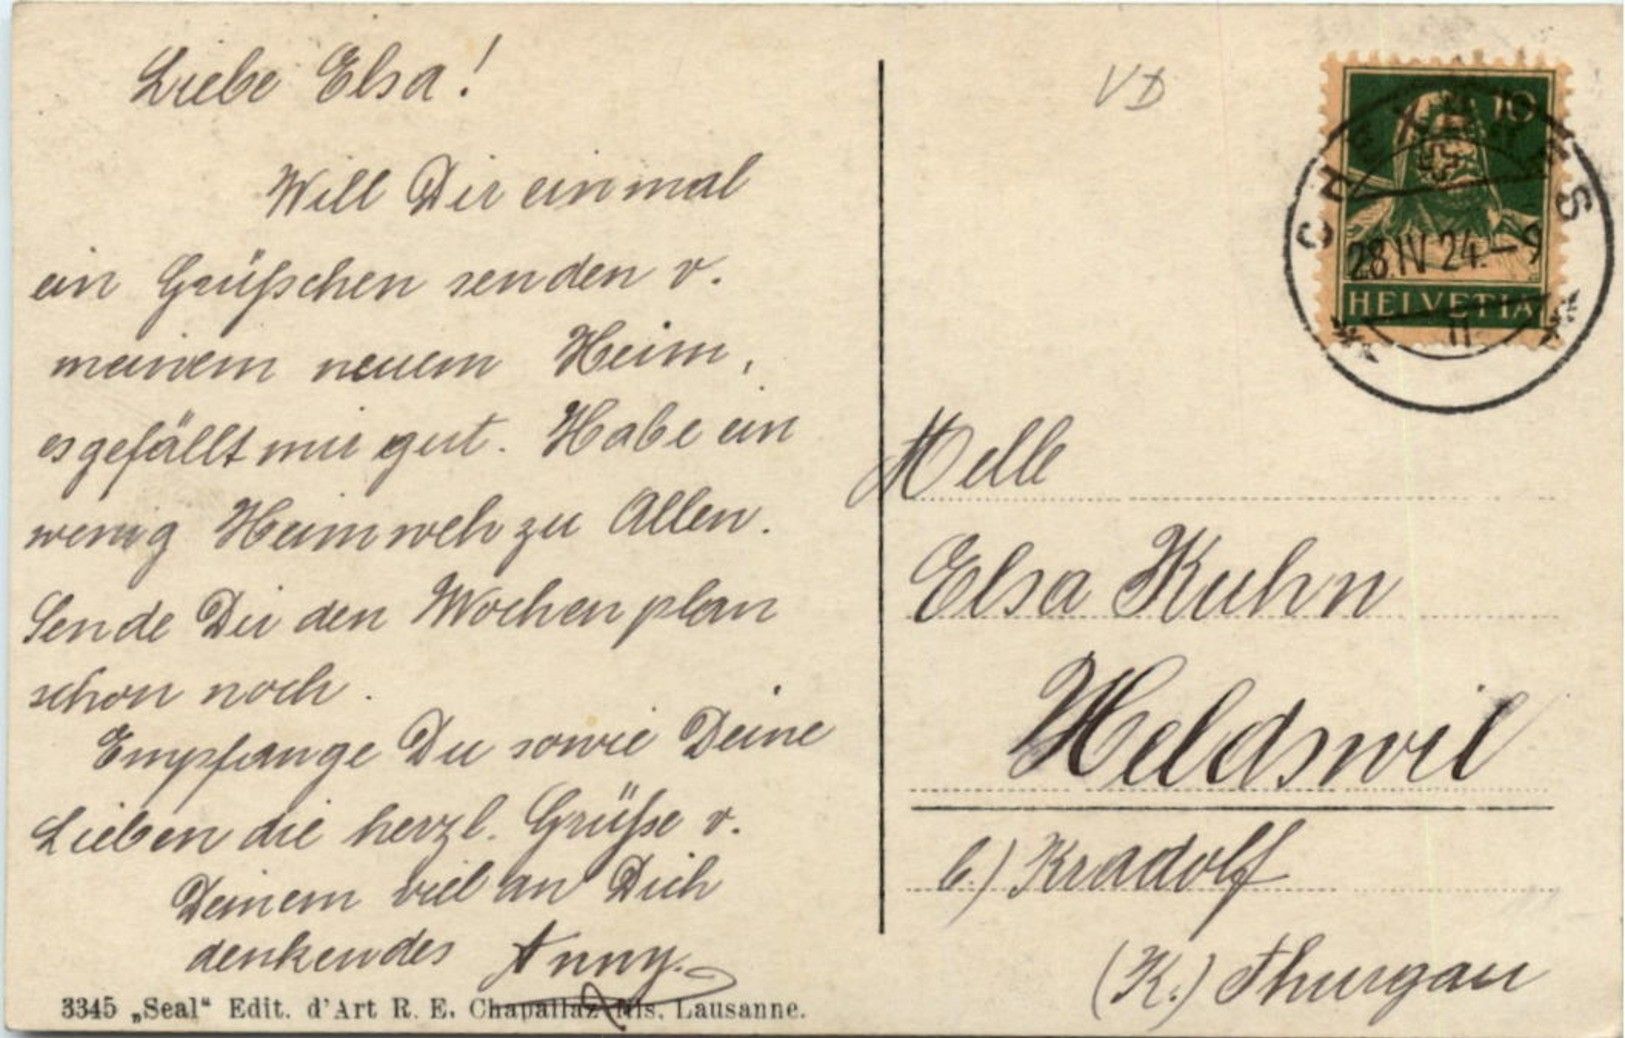 Liebe Elsa!
Will Dir einmal
ein Grüßschen senden v.
meinem neuem Heim,
es gefällt mir gut. Habe ein
wenig Heimweh zu Allen.
Sende Dir den Wochenplan
schon noch.
Empfange Du sowie Deine
Lieben die herzl. Grüße v.
Deinem viel an Dich
denkendes Anny.
3345 „Seal“ Edit. d'Art R. E. Chapallaz fils, Lausanne.
VD
10
CHEXBRES
28.IV.24.–9
HELVETIA
II
Melle
Elsa Kuhn
Heldswil
b.) Kradolf
(K.) Thurgau